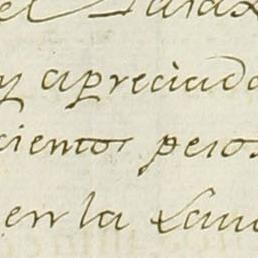 el
y apreciado
cientos pesos
en la